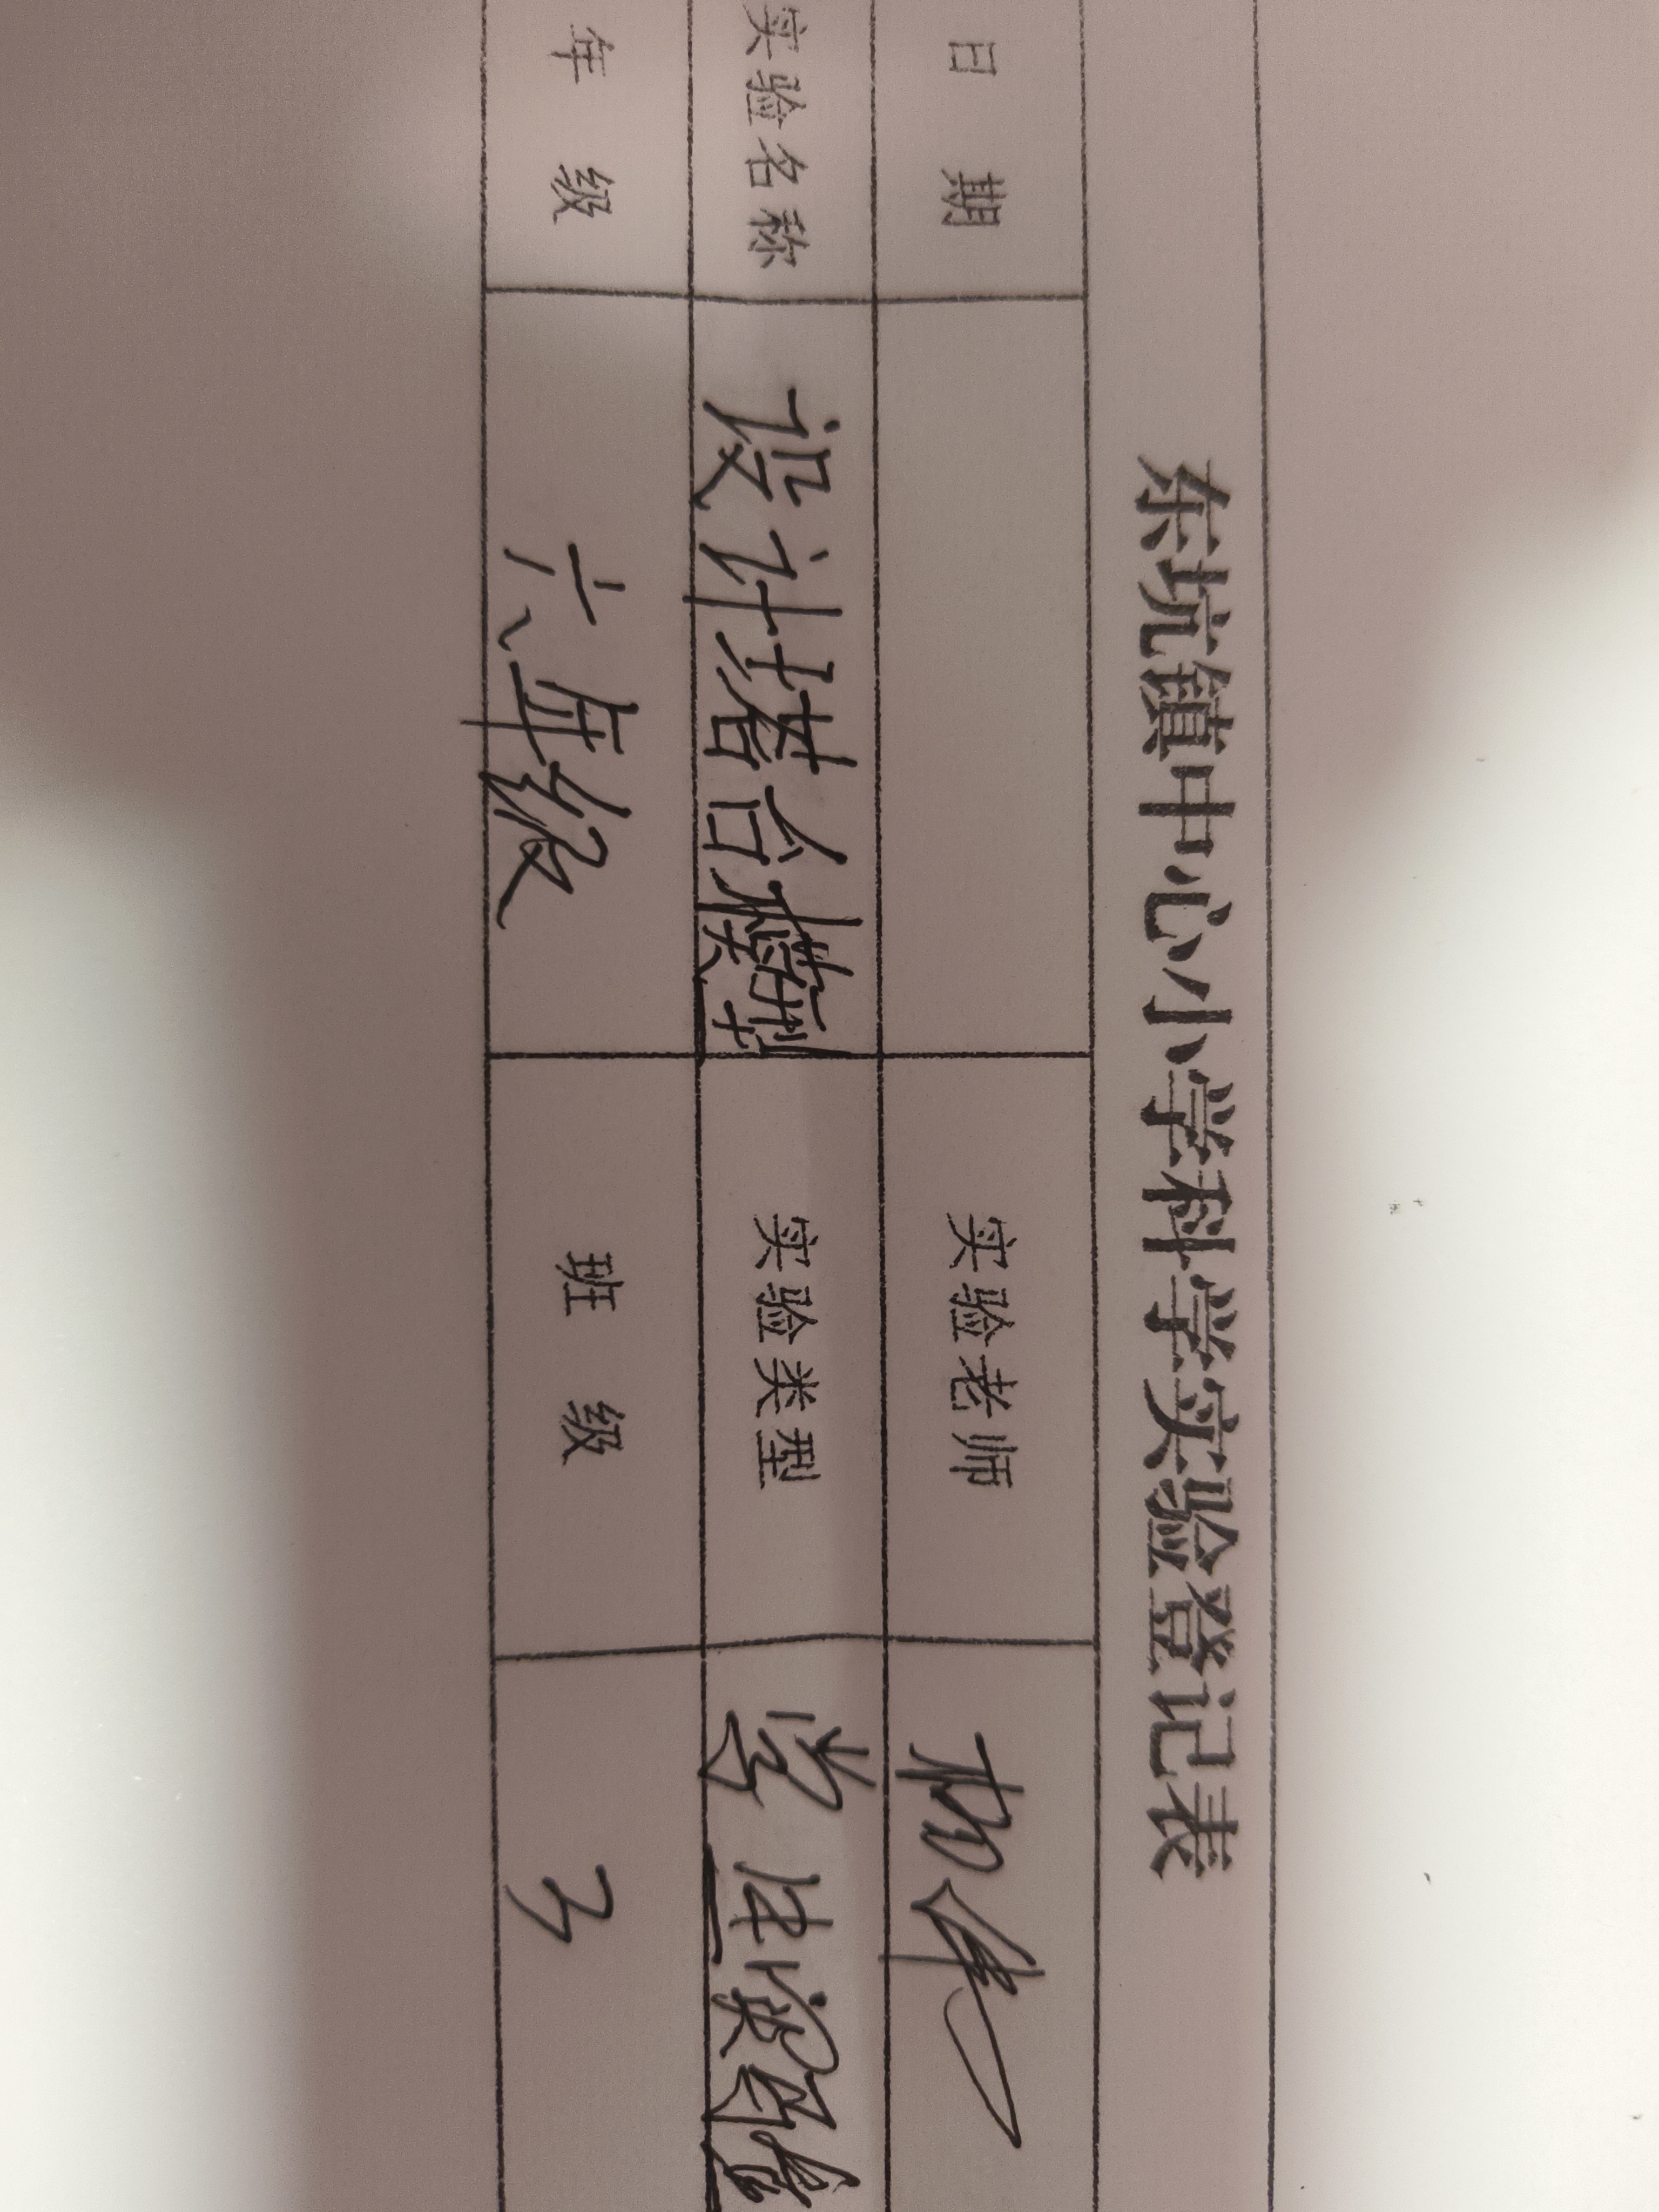 东坑镇中心小学科学实验登记表
日 期 实验老师
实验名称 设计塔台模型 实验类型 学生演
年 级 六年级 班 级 3